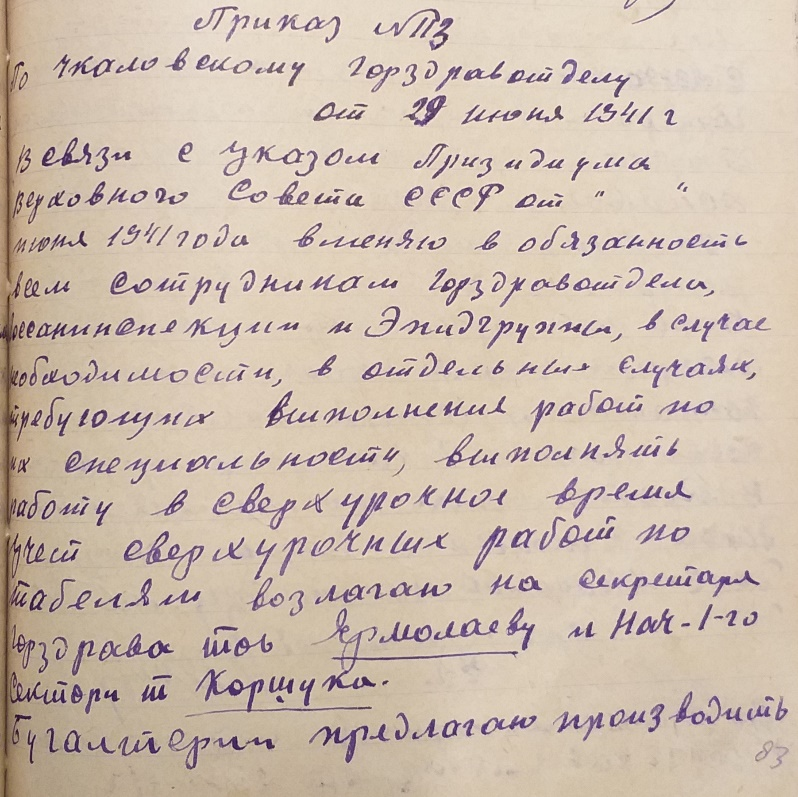 Приказ №113
По чкаловскому горздравотделу
от 29 июня 1941 г
В связи с указом Призидиума
Верховного Совета СССР от " "
июня 1941 года вменяю в обязанность
всем сотрудникам горздравотдела,
Госсанинспекции и Эпидгруппы, в случае
необходимости, в отдельных случаях,
требующих выполнения работ по
их специальности, выполнять
работу в сверхурочное время
учет сверхурочных работ по
табелям возлагаю на секретаря
горздрава тов Ярмолаеву и Нач-1-го
сектора т Коршука.
Бугалтерии предлагаю производить
83